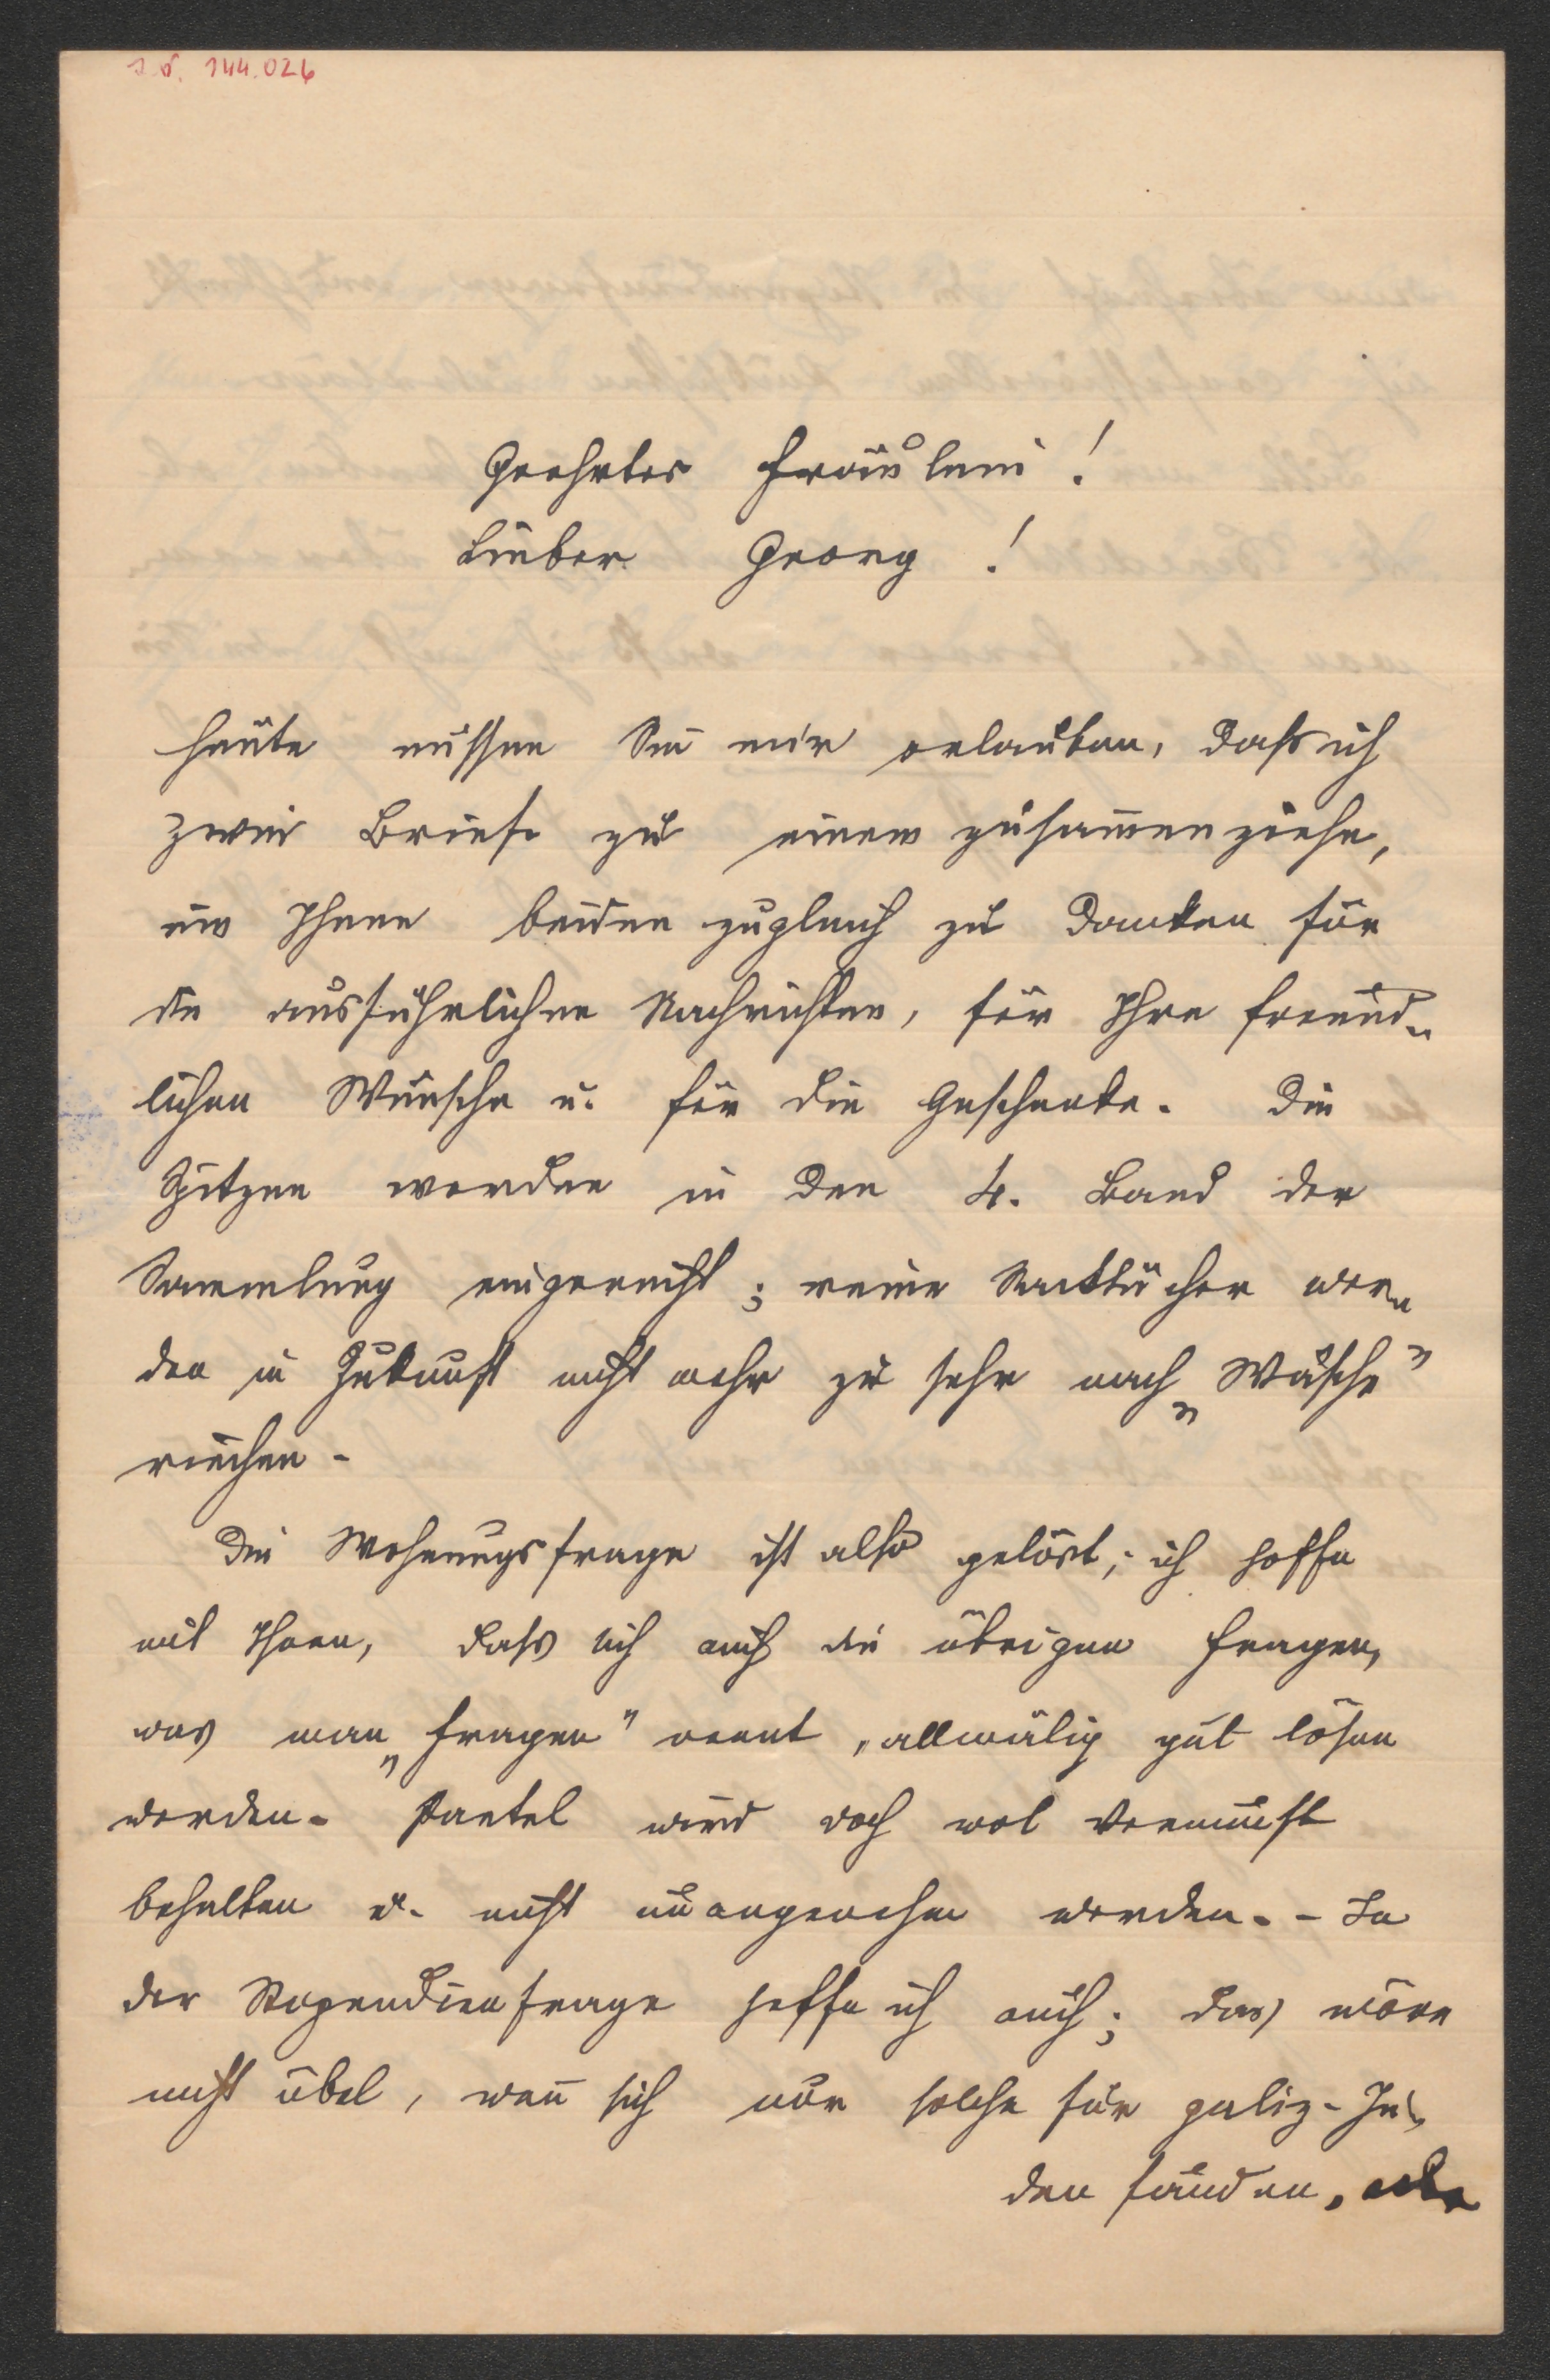 I. N. 144.026
Geehrtes Fräulein!
Lieber Georg!
heute müssen Sie mir erlauben, daſs ich
zwei Briefe zu einem zusam̄enziehe,
um Ihnen beiden zugleich zu danken für
die ausführlichen Nachrichten, für Ihre freund-
lichen Wünsche u. für die Geschenke. Die
Spitzen werden in den 4. Band der
Sammlung eingereiht; meine Sacktücher wer-
den in Zukunft nicht mehr zu sehr nach „Wäsche"
riechen -
Die Wohnungsfrage ist also gelöst; ich hoffe
mit Ihnen, daſs sich auch die übrigen Fragen,
was man „Fragen" nennt, allmälig gut lösen
werden. wird doch wol Vernunft
behalten u. nicht unangenehm werden. - In
der Stipendienfrage hoffe ich auch; das wäre
nicht übel, wen̄ sich nur solche für galiz. Ju-
den fänden,